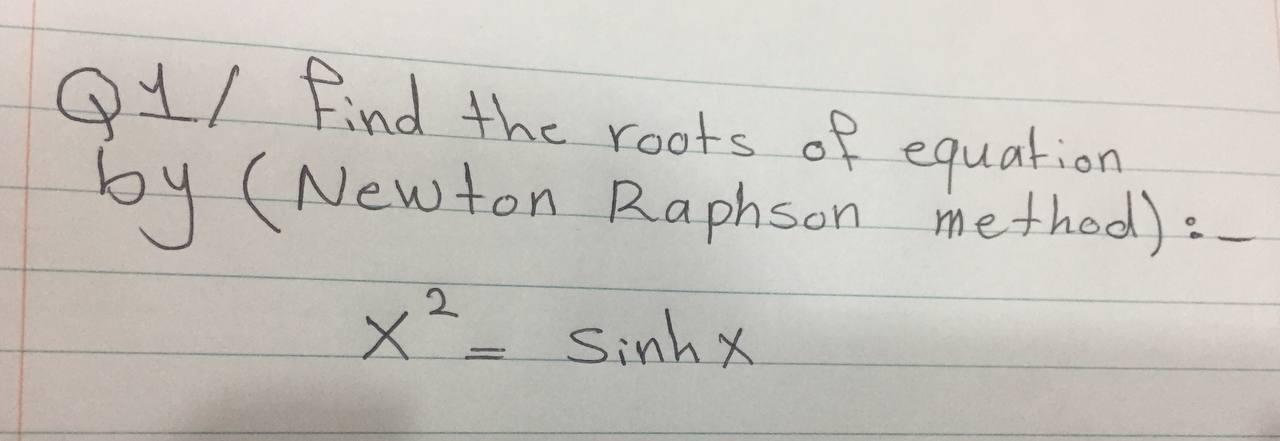 Q1/ Find the roots of equation
by (Newton Raphson method):-
x² = sinh x